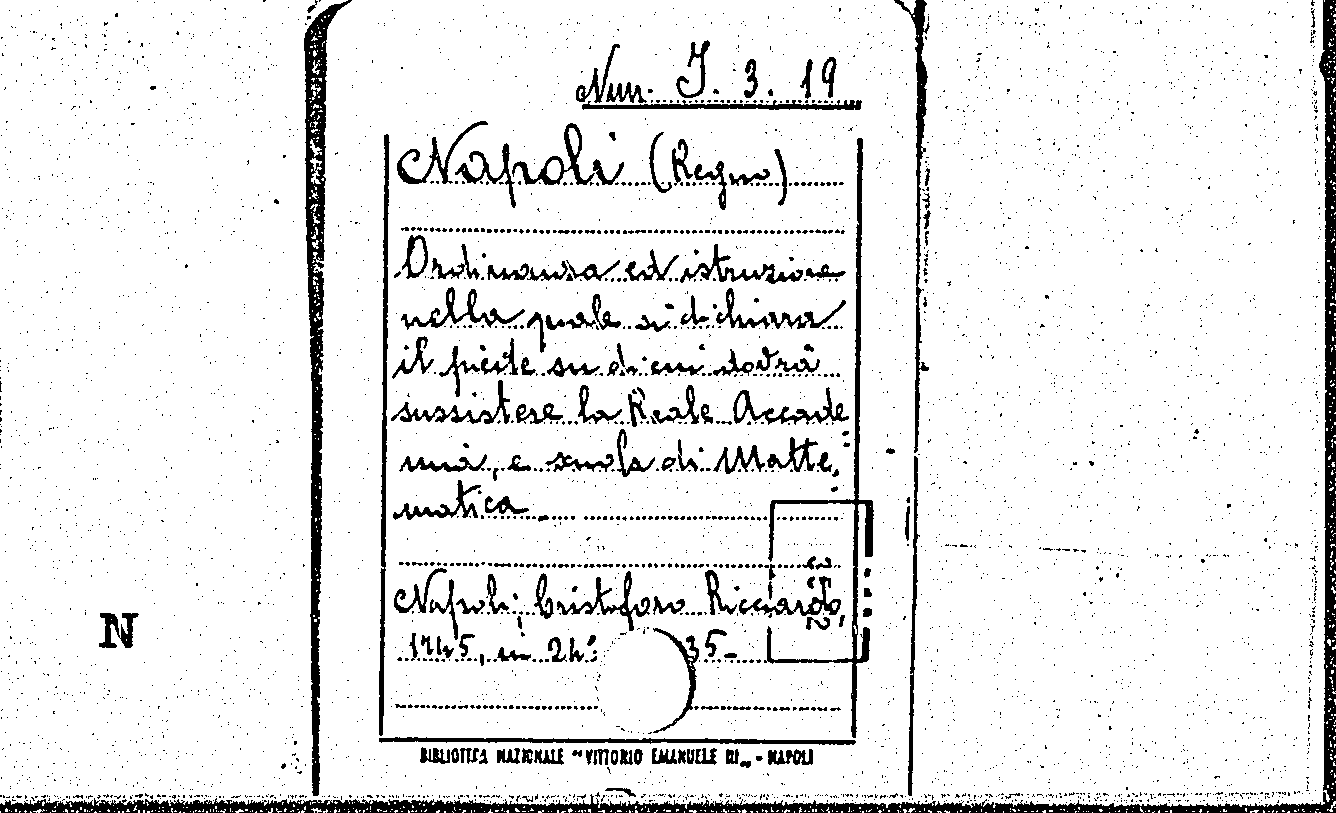 Num. J. 3. 19
Napoli (Regno)
Ordinanza ed istruzione
nella quale si dichiara
il piede su di cui dovrà
sussistere la Reale Accade
mia, e scuola di Matte,
matica.
Napoli, Cristoforo Ricciardo,
1745, in 24° 35-
BIBLIOTECA NAZIONALE "VITTORIO EMANUELE III„ - NAPOLI
N